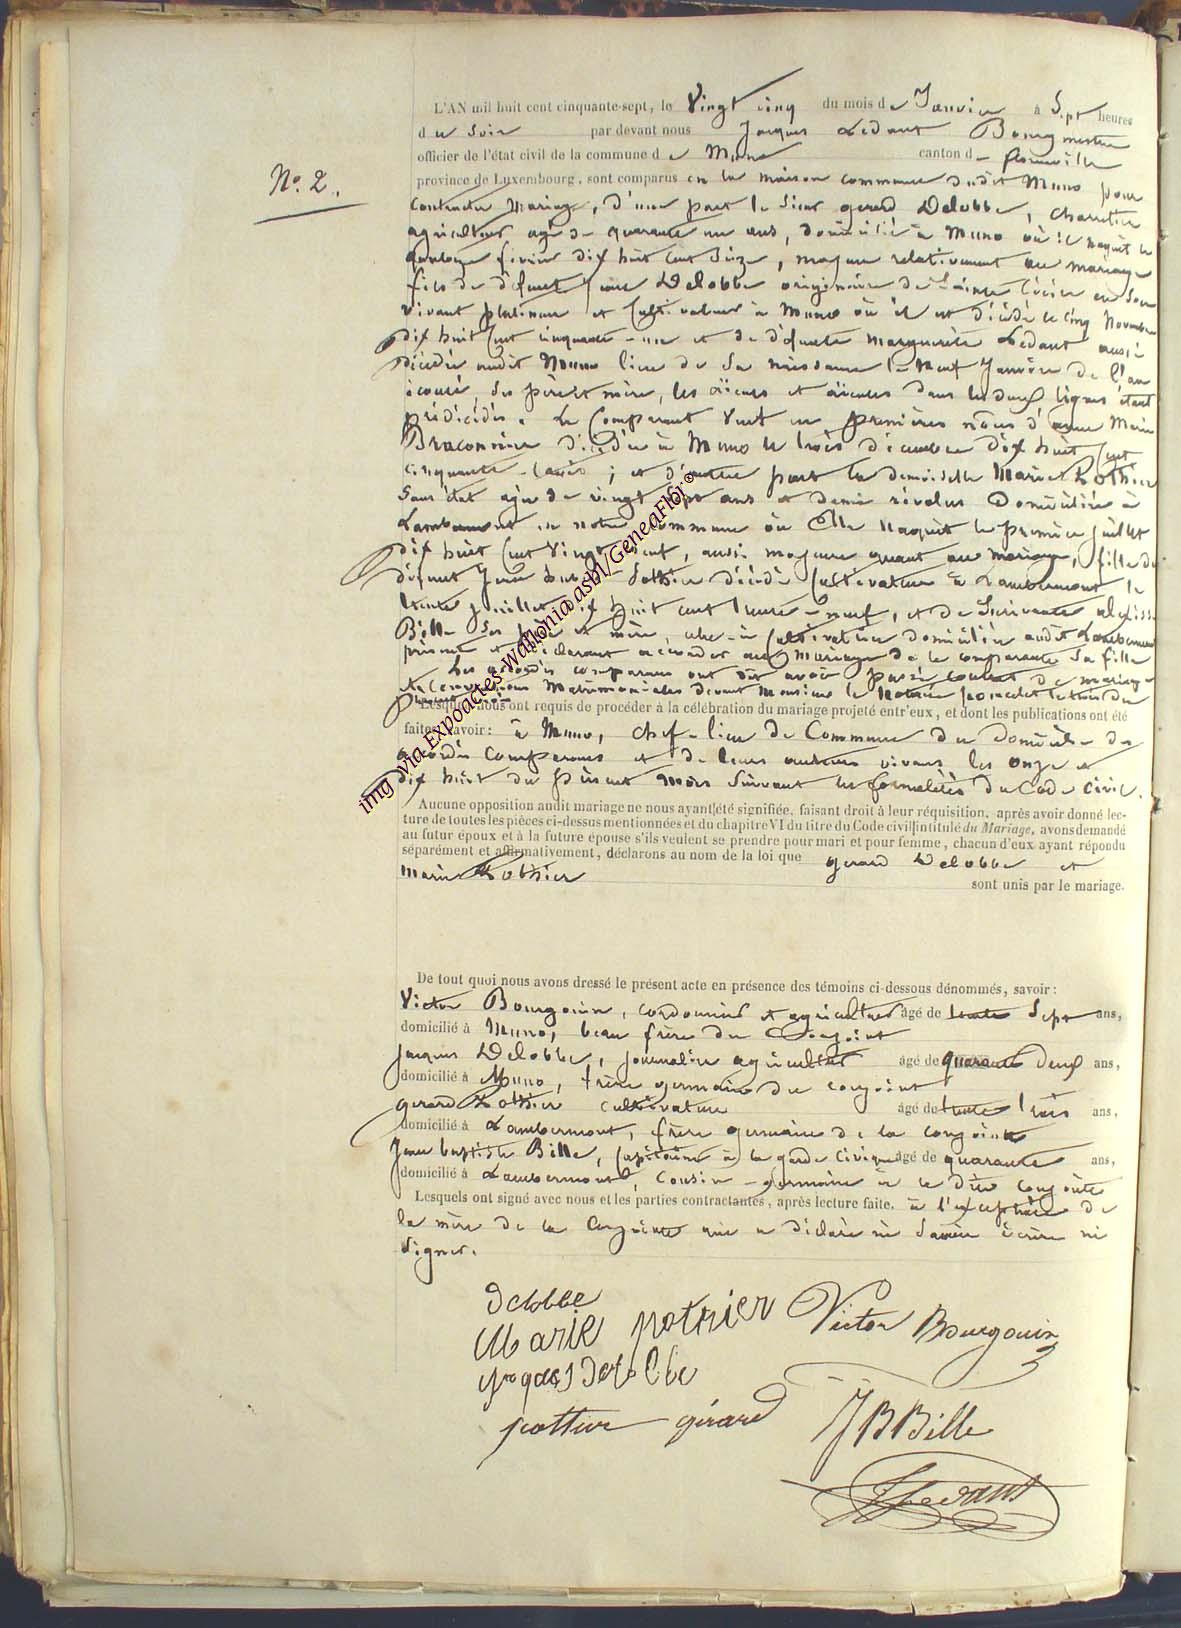 No. 2.
L'AN mil huit cent cinquante-sept, le Vingt cinq du mois de Janvier à Sept heures
du Soir par devant nous Jacques Ledant Bourgmestre
officier de l'état civil de la commune de Muno canton de florenville
province de Luxembourg, sont comparus en la maison commune dudit Muno pour
Contracter Mariage, d'une part le Sieur gerard Delobbe, charretier
agriculteur agé de quarante un ans, domicilié à Muno où il naquit le
fevrier dix huit Cent Seize, majeur relativement au mariage
fils de défunt Delobbe originaire de Sainte Cécile en Son
vivant et Cultivateur à Muno où il est décédé le cinq Novembre
dix huit Cent cinquante-un et de défunte Marguerite Ledant aussi
décédée audit Muno lieu de Sa naissance le neuf Janvier de l'an
écoulé, Ses père et mère, les aïeux et aïeules dans les deux lignes étant
prédécédés. Le Comparant Veuf en premières nôces d'anne Marie
Braconnier décédée à Muno le trois décembre dix huit Cent
cinquante ; et d'autre part la demoiselle Marie Pothier
Sans état agée de vingt Sept ans et demi révolus Domiciliée à
Lambermont en notre Commune où Elle Naquit le premier Juillet
dix huit Cent Vingt neuf, aussi majeure quant au mariage, fille de
défunt Jean Pothier décédé Cultivateur à Lambermont le
trente juillet dix huit cent trente-neuf, et de Survivante
Bille Ses père et mère, celle-ci Cultivatrice domiciliée audit Lambermont
présente et déclarant accorder au Mariage de la comparante Sa fille
Les accordés comparans ont dit avoir passé Contrat de mariage
Conventions Matrimoniales devant Monsieur le Notaire
Lesquels nous ont requis de procéder à la célébration du mariage projeté entr'eux, et dont les publications ont été
faites, savoir : à Muno, chef-lieu de Commune du domicile des
accordés Comparans et de leurs auteurs vivans les onze et
dix huit du présent Mois Suivant les formalités du Code Civil.
Aucune opposition audit mariage ne nous ayant été signifiée, faisant droit à leur réquisition, après avoir donné lec-
ture de toutes les pièces ci-dessus mentionnées et du chapitre VI du titre du Code civil intitulé du Mariage, avons demandé
au futur époux et à la future épouse s'ils veulent se prendre pour mari et pour femme, chacun d'eux ayant répondu
séparément et affirmativement, déclarons au nom de la loi que gerard Delobbe et
Marie Pothier
sont unis par le mariage.
De tout quoi nous avons dressé le présent acte en présence des témoins ci-dessous dénommés, savoir :
Victor Bourgouin, cordonnier et agriculteur âgé de trente Sept ans,
domicilié à Muno, beau frère du Conjoint
Jacques Delobbe, journalier agriculteur âgé de quarante deux ans,
domicilié à Muno, frère germain du conjoint
gerard Pothier cultivateur âgé de trente trois ans,
domicilié à Lambermont, frère germain de la conjointe
Jean baptiste Bille, Capitaine à la garde Civique âgé de quarante ans,
domicilié à Lambermont, Cousin-germain à la dite conjointe
Lesquels ont signé avec nous et les parties contractantes, après lecture faite. à l'exception de
la mère de la Conjointe qui a déclaré ne Savoir écrire ni
Signer.
Delobbe
Marie pothier Victor Bourgouin
jacques Delobbe
pothier gérard JB Bille
J Ledant
img via Expoactes-Wallonia asbl/GeneaFlbr©